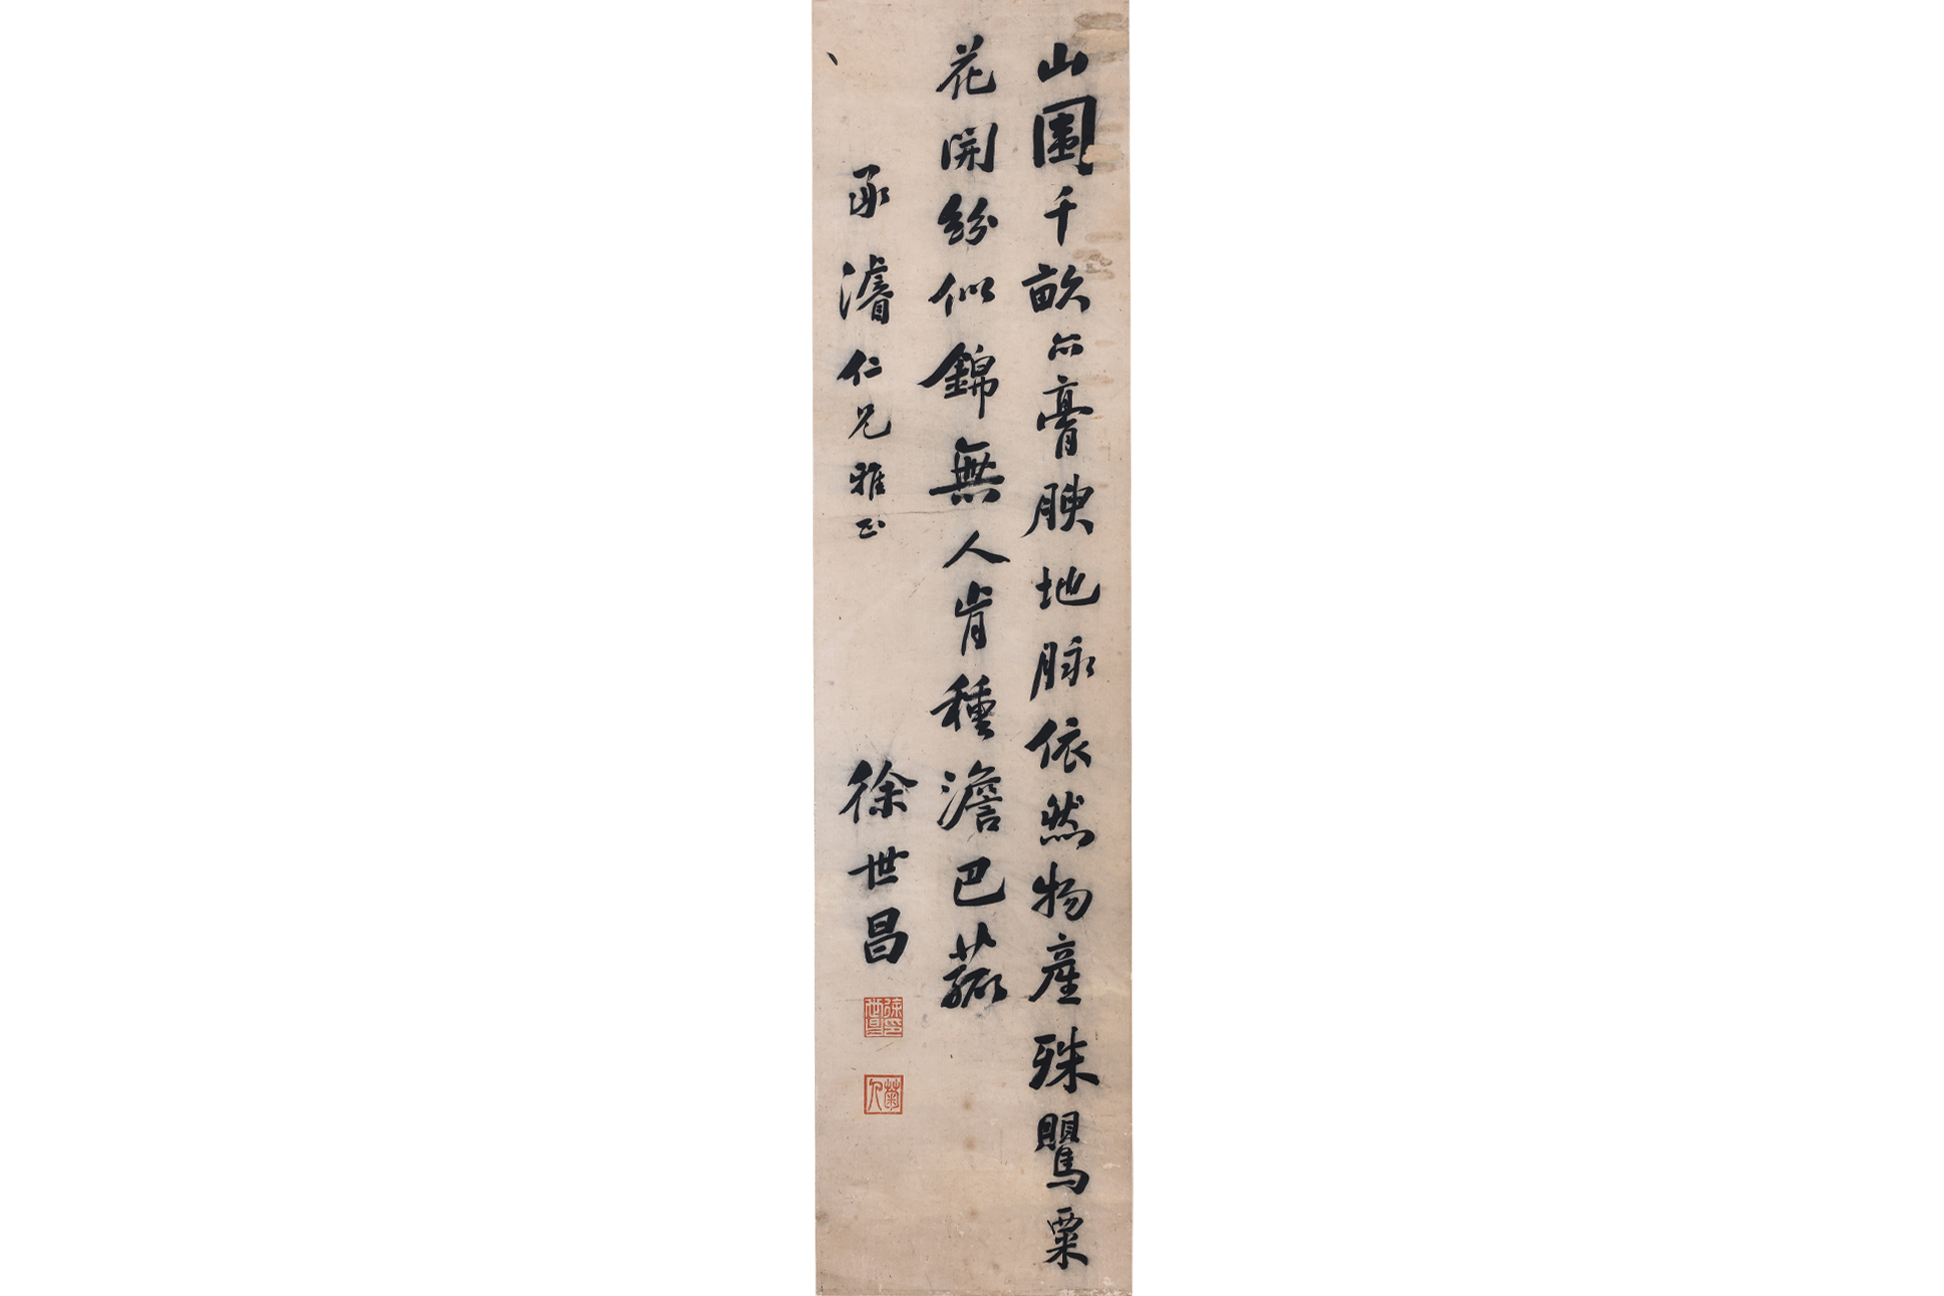 山園千畝亦膏腴地脉依然物產殊鸎粟
花開紛似錦無人肯種澹巴菰
承濬仁兄雅正
徐世昌
徐印世昌
菊人